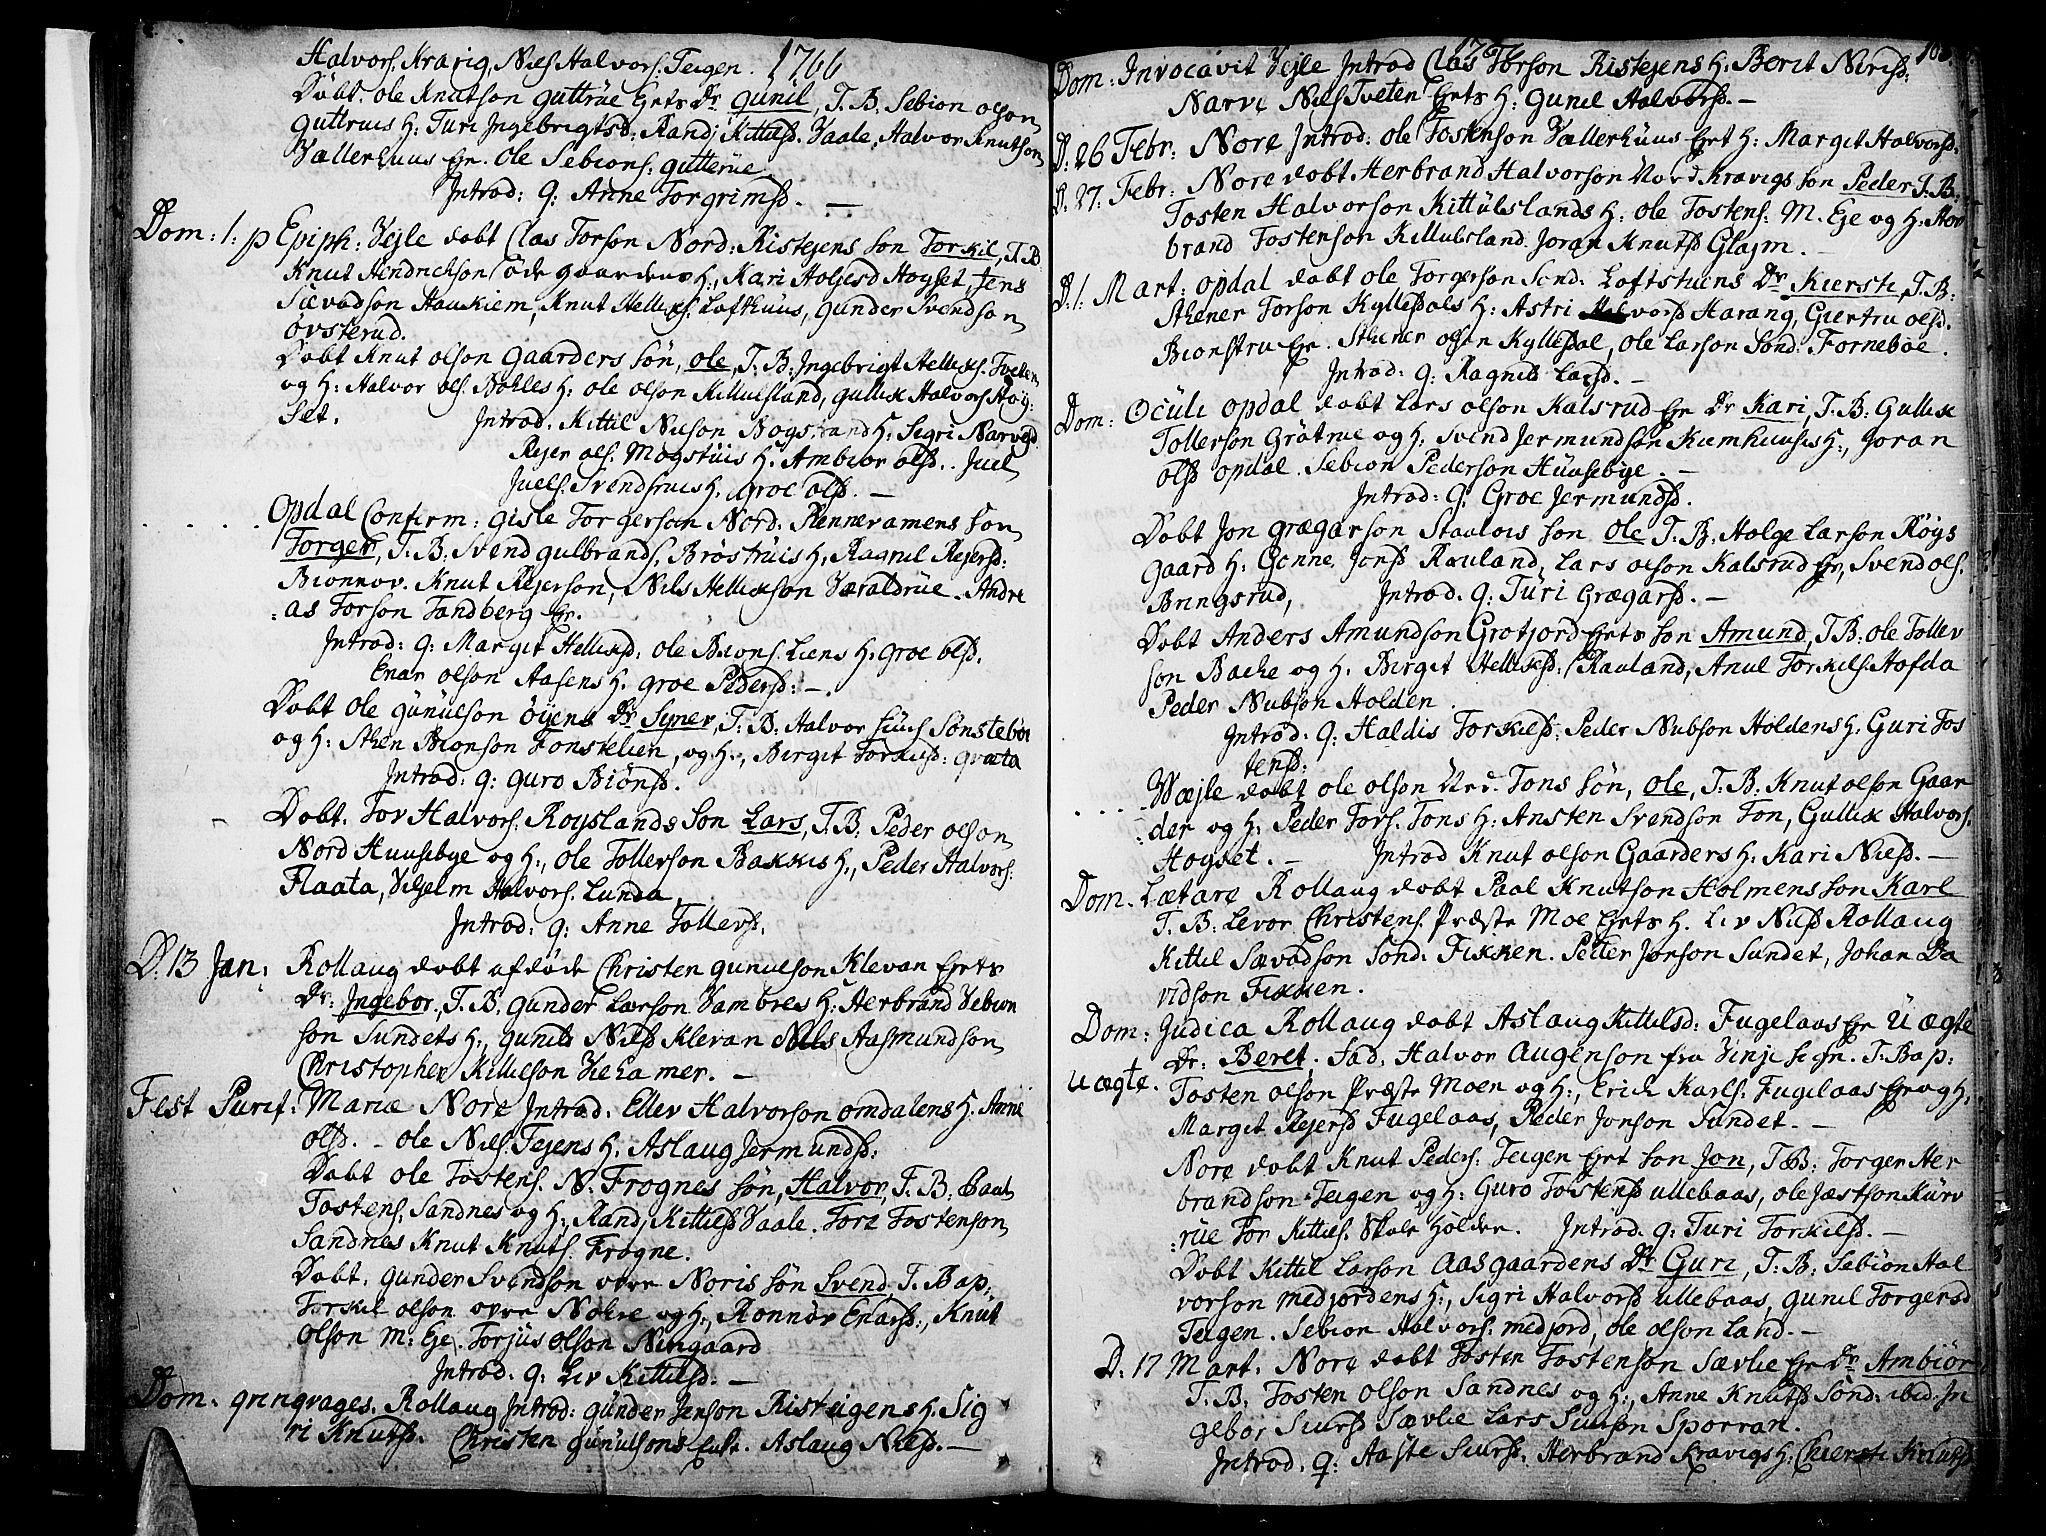 1766
Halvors. Kravig, Niels Halvors. Teigen.
Døbt. Ole Knutson Guttrue Ejets Dr Gunil, T. B. Sebion Olson
Guttruis H: Turi Ingebrigtsd: Randi Kittilsd. Vaale, Halvor Knutson
Vællerhuus Ejr. Ole Sebions: Gutterue.
Introd: q: Anne Torgrimsd. —
Dom: 1: p Epiph: Vejle døbt Clas Torson Nord: Ristejens søn Torkil, T. B.
Knut Hendrickson Øde gaardens H:, Kari Holjesd Høyset, Jens
Sævadson Haukiem, Knut Hellixs. Lofthuus, Gunder Svendson
Øvsterud.
Døbt Knut Olson Gaarders søn, Ole, T. B: Ingebrigt Hellixs. Tveten
og H: Halvor Ols. Nøkles H: Ole Olson Kittulsland, Gullik Halvors Høy:
set. Introd. Kittil Nielson Bogstrand H: Sigri Narvesd
Rejer Ols. Mogstuis H. Ambior Olsd. Juel
Juels. Svendsruis H. Groe Olsd. —
Opdal Confirm: Gisle Torgerson Nord. Rennevamens søn
Torger, T. B: Svend Gulbrands. Brøstruis H: Ragnil Rejersd:
Bionnov. Knut Rejerson, Nils Hellixson Væraldrue. Andre
:as Torson Tandberg Ejr.
Introd: q: Margit Hellixd: Ole Bions. Liens H: Groe Olsd.
Enar Olson Aasens H. Groe Pedersd: —.
Døbt Ole Gunulson Øyens Dr Synev, T. B. Halvor Sønstebøe
og H: Sthen Bionson Fonstelien, og H:, Birgit Torkilsd: Qvæta
Introd: q: Guro Biønsd.
Døbt. Tov Halvors. Røyslands søn Lars, T. B. Peder Olson
Nord Huusebye og H:, Ole Tollefson Bakkis H:, Peder Halvors:
Flaata, Vilhelm Halvors. Lunda.
Introd: q: Anne Tollevsd.
D. 13 Jan: Rollaug døbt afdøde Christen Gunulson Klevan Ejets
Dr: Ingebor, T. B. Gunder Larson Vambres H: Herbrand Sebion
son Sundets H:, Gunild Nilsd Klevan Nils Aasmundson
Christopher Kittilson Viekamer. —
Fest Purif: Mariæ Nore Introd. Ellev Halvorson Omdalens H. Anne
Olsd. — Ole Niels. Tejens H: Aslaug Jermundsd:
Døbt Ole Tostens. N. Frognes søn, Halvor, T. B: Paul
Tostens. Sandnes og H:, Rand, Kittilsd Vaale. Tore Tostenson
Sandnes Knut Knuts. Frogne.
Døbt. Gunder Svendson Øvre Noris søn Svend, T. Bap:
Torkil Olson Øvre Nøkre og H:, Ronnøv Enarsd:, Knut
Olson M: Eje. Torjus Olson Nirigaard
Introd. q: Liv Kittilsd. —
Dom. qvinqvages. Rollaug Introd: Gunder Jenson Risteigens H. Sig
ri Knutsd. Christen Gunulsons Enke. Aslaug Nilsd. —
Dom: Invocavit Vejle Introd Clas Torson Ristejens H: Berit Nirisd:
Narve Niels Tveten Ejets H: Gunil Halvorsd. —
D. 26 Febr: Nore Introd: Ole Tostenson Vællerhuus Ejet H: Margit Halvorsd:
D. 27. Febr: Nore døbt Herbrand Halvorson Nord Kravigs søn Peder T. B.
Tosten Halvorson Kittulslands H: Ole Tostens: M. Eje og H: Her
brand Tostenson Kittulsland Joran Knutsd Glajm. —
D. 1. Mart: Opdal døbt Ole Torgerson Sønd. Loftstuens Dr Kiersti, T. B:
Sthener Torson Kylledals H: Astri Halvorsd Harang, Giertru Olsd.
Bionstru Ejr. Sthener Olson Kylledal, Ole Larson Sønd: Fornebøe.
Introd: q: Ragnild Larsd. —
Dom: Oculi Opdal døbt Lars Olson Kalsrud Ejr Dr Kari, T. B: Gullix
Tollefson Grøtrue og H: Svend Jermundson Kiemhuuses H:, Joran
Olsd Opdal. Sebion Pederson Huusebye. —
Introd: q: Groe Jermundsd.
Døbt Jon Grægarson Staalois søn Ole T. B: Holge Larson Røys
gaard H: Gønne Jonsd Rauland, Lars Olson Kalsrud Ejr, Svend Ols.
Bringsrud, Introd. q: Turi Grægarsd. —
Døbt Anders Amundson Grøtjord Ejets søn Amund, T. B: Ole Tollev
son Backe og H. Birgit Hellixsd: Rauland, Anul Torkils. Hofda
Peder Nubson Holden.
Introd. q: Haldis Torkilsd: Peder Nubson Holdens H: Guri Tos
tensd:
Wejle døbt Ole Olson Nrd. Tons søn, Ole, T. B. Knut Olson Gaar
:der og H: Peder Tors. Tons H: Ansten Svendson Ton, Gullix Halvors.
Høyset. — Introd Knut Olson Gaarders H: Kari Nielsd. —
Dom. Lætare Rollaug døbt Paal Knutson Holmens søn Karl
T. B: Levor Christens. Præste Moe Ejets H. Liv Nilsd Rollaug
Kittil Sævadson Sønd. Fikken. Peder Jonson Sundet, Johan Da
vidson Fikken.
Dom: Judica Rollaug døbt Aslaug Kittilsd: Fugelaas Ejr Uægte
Dr: Beret. Fad: Halvor Augenson fra Vinje Sogn. T. Bap:
Uægte. Tosten Olson Præste Moen og H:, Erick Karls: Fugelaas Ejr og H,
Margit Rejersd Fugelaas, Peder Jonson Sundet. —
Nore døbt Knut Peders. Teigen Ejet søn Jon, T. B: Torger Her
brandson Teigen og H: Guro Tostensd Ullebaas, Ole Jæstson Kurv
:rue Tor Kittils. Skole Holder. Introd. q: Turi Torkilsd. —
Døbt Kittil Larson Aasgaardens Dr Guri, T. B: Sebion Hal
vorson Medjordens H:, Sigri Halvorsd Ullebaas, Gunil Torgersd
Teigen. Sebion Halvors. Medjord, Ole Olson Land. —
D. 17 Mart. Nore døbt Tosten Tostenson Sævlie Ejr Dr Ambiør
T. B. Tosten Olson Sandnes og H:, Anne Knutsd Sønd: ibid. In
gebor Siursd Sævlie Lars Siurson Sporran.
Introd. q: Aaste Siursd. Herbrand Kravigs H: Chiersti Knutsd